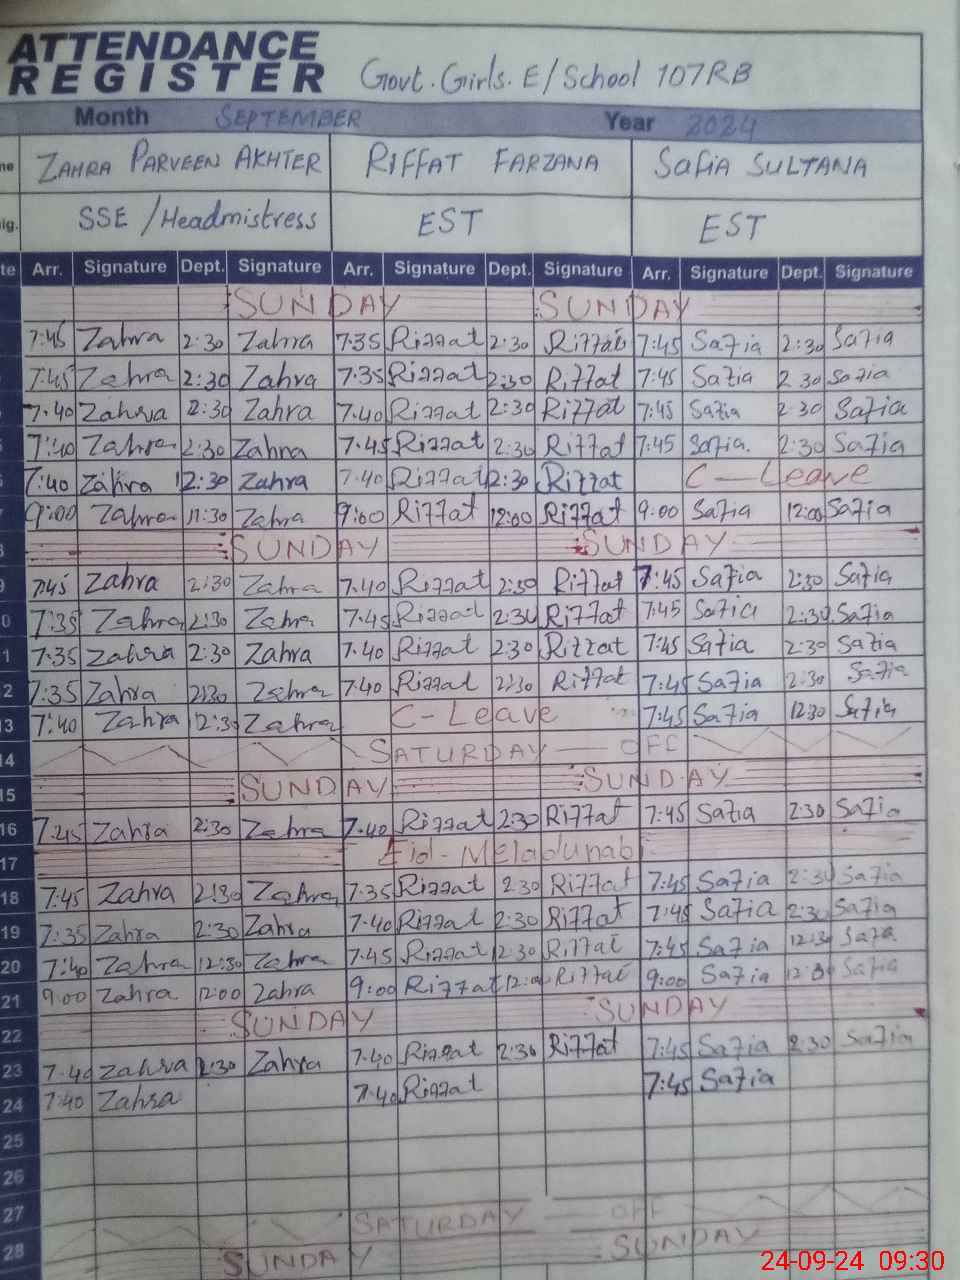 ATTENDANCE
REGISTER Govt. Girls. E/School 107RB
Month SEPTEMBER Year 2024
me ZAHRA PARVEEN AKHTER RIFFAT FARZANA SAFIA SULTANA
ig. SSE /Headmistress EST EST
te Arr. Signature Dept. Signature Arr. Signature Dept. Signature Arr. Signature Dept. Signature
SUNDAY SUNDAY
7:45 Zahra 2:30 Zahra 7.35 Riffat 2:30 Riffat 7:45 Safia 2:30 Safia
7:45 Zahra 2:30 Zahra 7.35 Riffat 2:30 Riffat 7:45 Safia 2 30 Safia
7.40 Zahra 2:30 Zahra 7.40 Riffat 2:30 Riffat 7:45 Safia 2 30 Safia
7:40 Zahra 2:30 Zahra 7.45 Riffat 2:30 Riffat 7:45 Safia. 2:30 Safia
7:40 Zahra 12:30 Zahra 7.40 Riffat 12:30 Riffat C-Leave
9:00 Zahra 11:30 Zahra 9:00 Riffat 12:00 Riffat 9:00 Safia 12:00 Safia
8 SUNDAY SUNDAY
9 7:45 Zahra 2:30 Zahra 7.40 Riffat 2:30 Riffat 7:45 Safia 2:30 Safia
0 7:35 Zahra 2:30 Zahra 7.45 Riffat 2:30 Riffat 7:45 Safia 2:30 Safia
1 7.35 Zahra 2:30 Zahra 7.40 Riffat 2:30 Riffat 7:45 Safia 2:30 Safia
2 7:35 Zahra 2:30 Zahra 7:40 Riffat 2:30 Riffat 7:45 Safia 2:30 Safia
13 7:40 Zahra 12:30 Zahra C-Leave 7:45 Safia 12:30 Safia
14 SATURDAY — OFF
15 SUNDAY SUNDAY
16 7:45 Zahra 2:30 Zahra 7.40 Riffat 2:30 Riffat 7:45 Safia 2:30 Safia
17 Eid-Meladunabi
18 7:45 Zahra 2:30 Zahra 7:35 Riffat 2.30 Riffat 7:45 Safia 2:30 Safia
19 7:35 Zahra 2:30 Zahra 7.40 Riffat 2:30 Riffat 7:45 Safia 2:30 Safia
20 7:40 Zahra 12:30 Zahra 7.45 Riffat 12:30 Riffat 7:45 Safia 12:30 Safia
21 9:00 Zahra 12:00 Zahra 9:00 Riffat 12:00 Riffat 9:00 Safia 12:30 Safia
22 SUNDAY SUNDAY
23 7.40 Zahra 2:30 Zahra 7.40 Riffat 2:30 Riffat 7:45 Safia 2:30 Safia
24 7:40 Zahra 7.40 Riffat 7:45 Safia
25
26
27 SATURDAY — OFF
28 SUNDAY SUNDAY
24-09-24 09:30